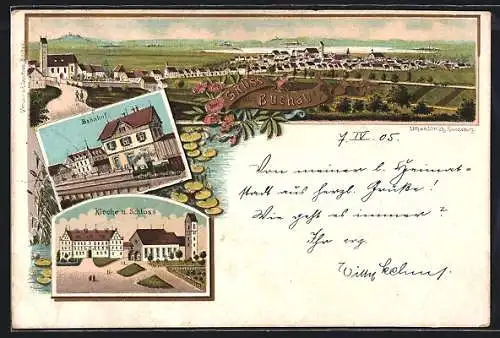 Gruss
aus
Buchau
Bahnhof
Kirche u. Schloss
7. IV. 05.
Von meiner l. Heimat-
stadt aus herzl. Grüße!
Wie geht es immer?
Ihr erg.
Willy